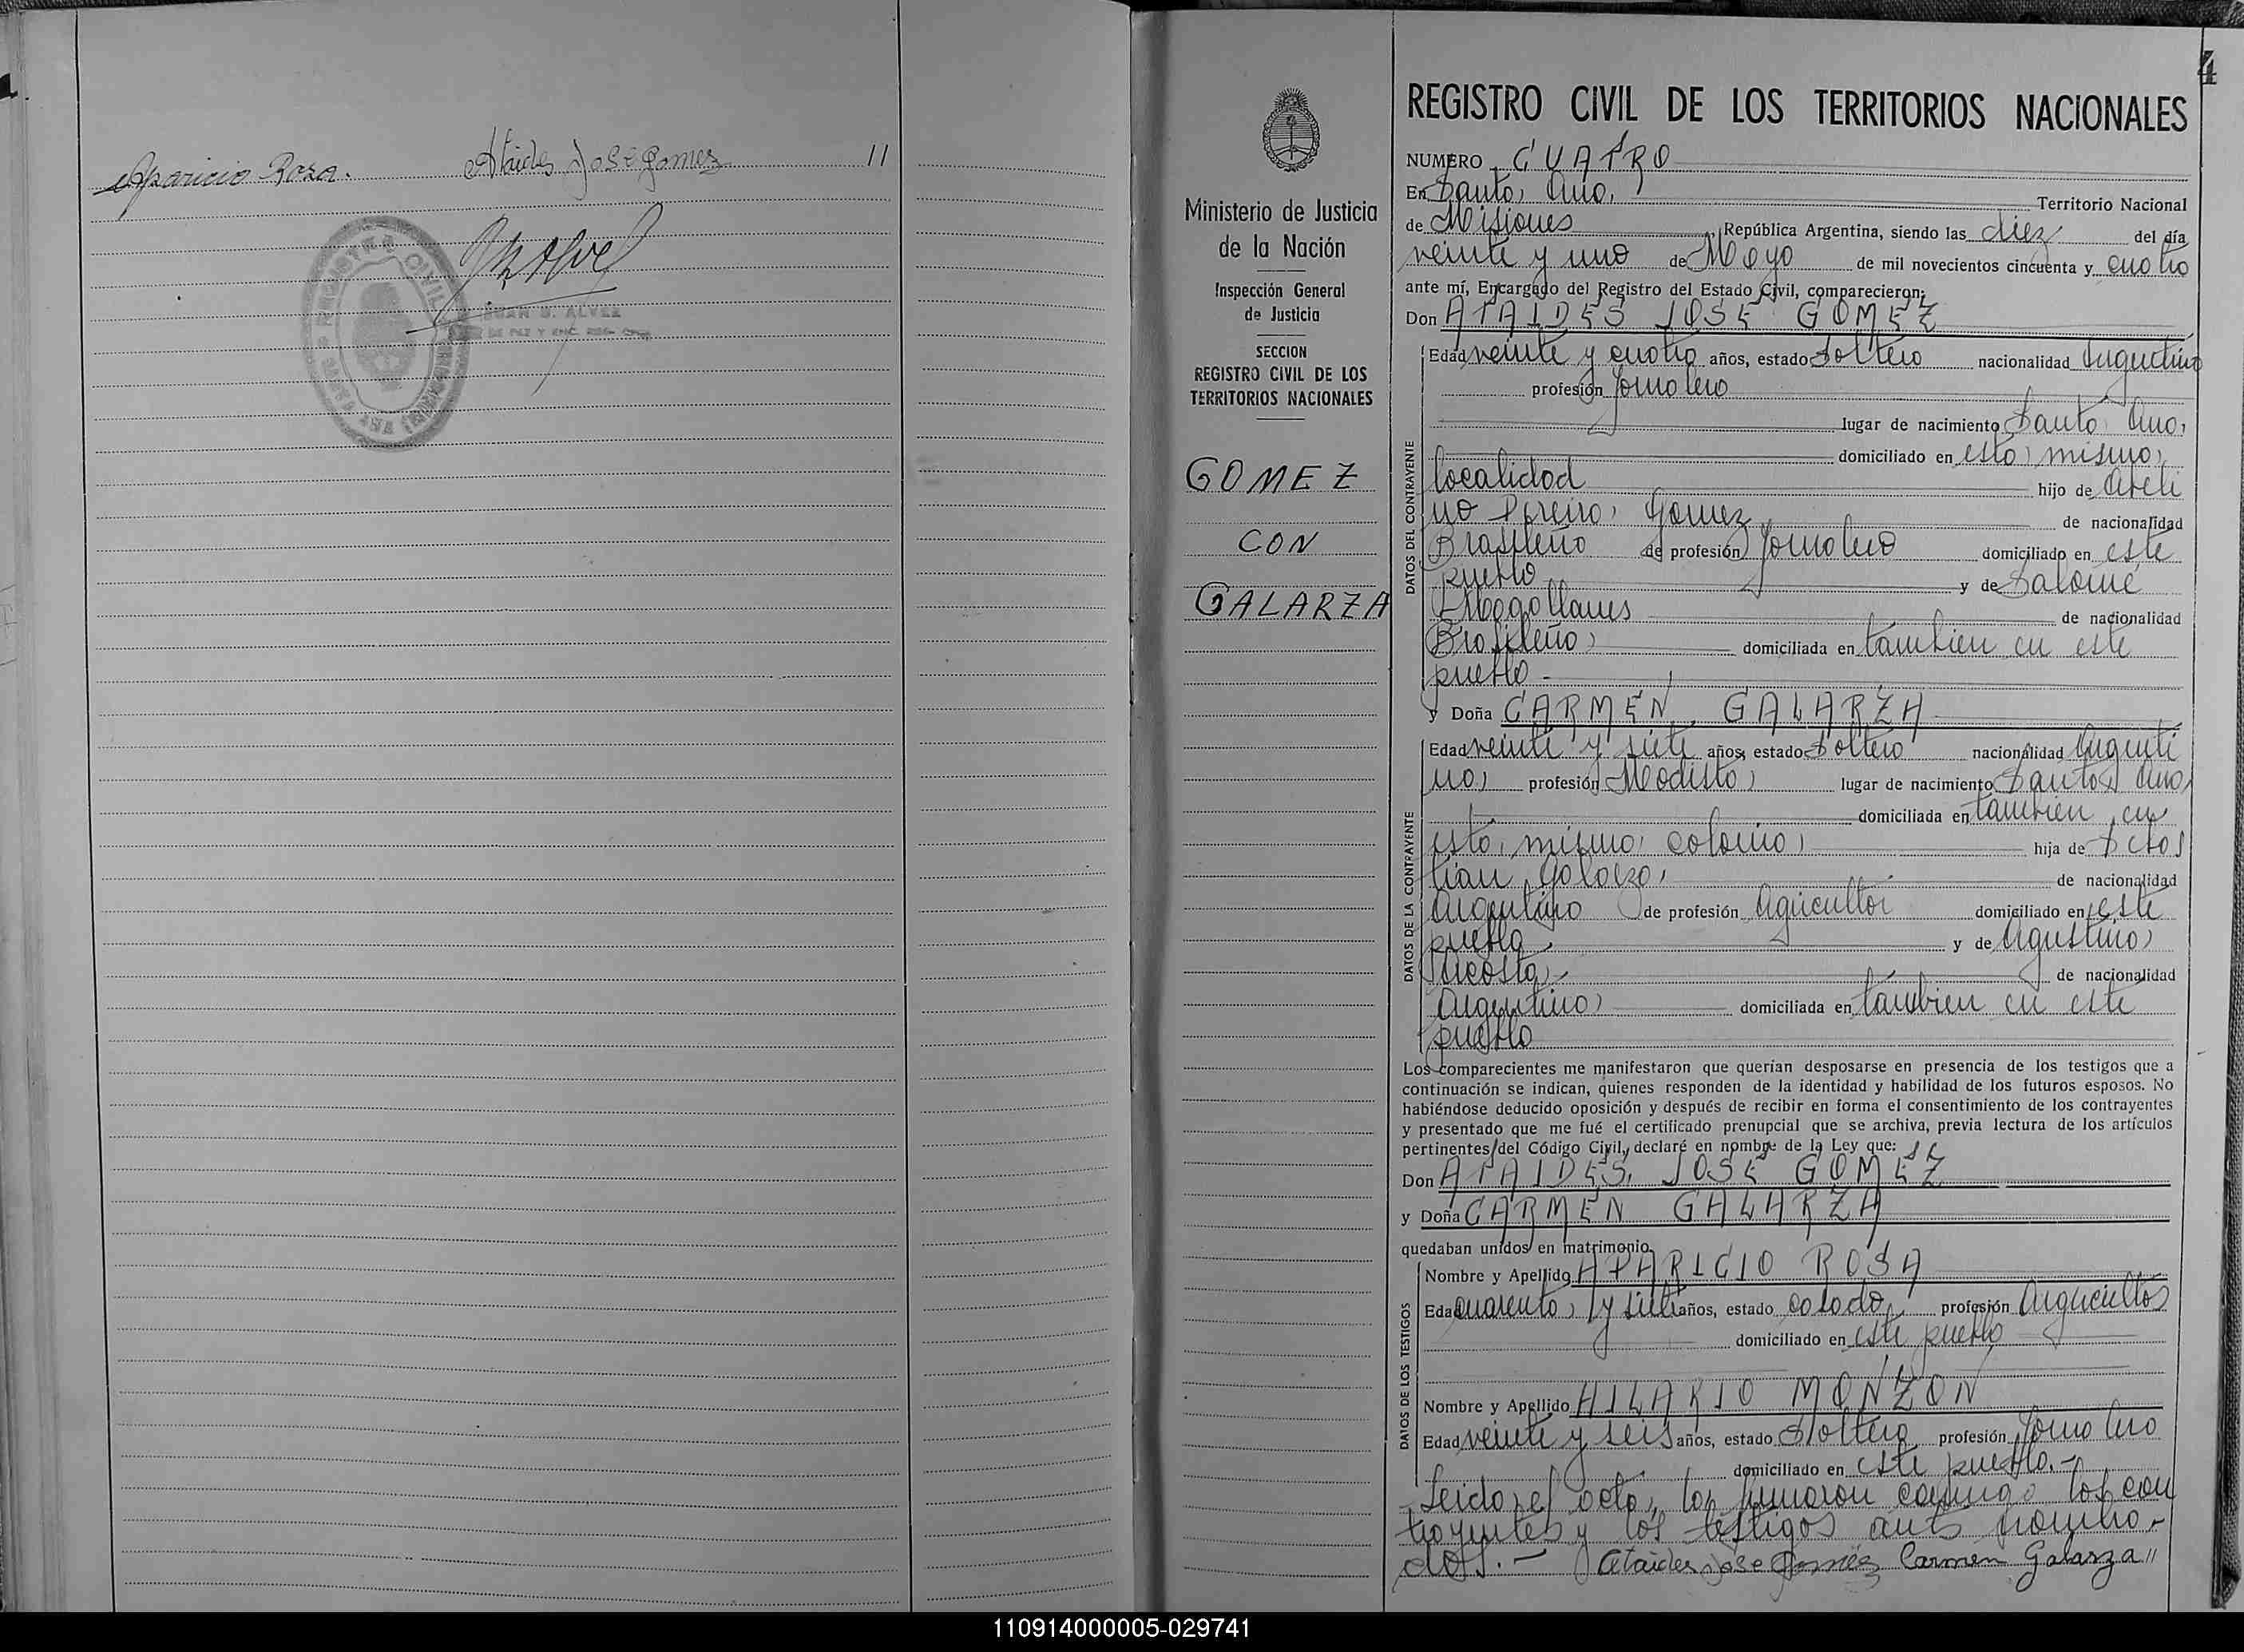 Aparicio Rosa. Ataides Jose Gomez 11
REGISTRO CIVIL
JUAN B. ALVEZ
DE PAZ Y ENC. REG. CIVIL
4
Ministerio de Justicia
de la Nación
Inspección General
de Justicia
SECCION
REGISTRO CIVIL DE LOS
TERRITORIOS NACIONALES
GOMEZ
CON
GALARZA
REGISTRO CIVIL DE LOS TERRITORIOS NACIONALES
NUMERO CUATRO
En Santa Ana, Territorio Nacional
de Misiones República Argentina, siendo las diez del día
veinte y uno de Mayo de mil novecientos cincuenta y cuatro
ante mí, Encargado del Registro del Estado Civil, comparecieron:
Don ATAIDES JOSE GOMEZ
DATOS DEL CONTRAYENTE
Edad veinte y cuatro años, estado Soltero nacionalidad Argentino
profesión Jornalero
lugar de nacimiento Santa Ana,
domiciliado en esta misma
localidad hijo de Aveli
no Pereira Gomez de nacionalidad
Brasileño de profesión Jornalero domiciliado en este
pueblo y de Salomé
Magallanes de nacionalidad
Brasileña domiciliada en tambien en este
pueblo -
y Doña CARMEN GALARZA
DATOS DE LA CONTRAYENTE
Edad veinte y siete años, estado Soltera nacionalidad Argenti
na, profesión Modista, lugar de nacimiento Santa Ana,
domiciliada en tambien en
esta misma colonia, hija de Sebas
tian Galarza, de nacionalidad
Argentino de profesión Agricultor domiciliado en este
pueblo, y de Agustina
Acosta, de nacionalidad
Argentina domiciliada en tambien en este
pueblo
Los comparecientes me manifestaron que querían desposarse en presencia de los testigos que a
continuación se indican, quienes responden de la identidad y habilidad de los futuros esposos. No
habiéndose deducido oposición y después de recibir en forma el consentimiento de los contrayentes
y presentado que me fué el certificado prenupcial que se archiva, previa lectura de los artículos
pertinentes del Código Civil, declaré en nombre de la Ley que:
Don ATAIDES JOSE GOMEZ
y Doña CARMEN GALARZA
quedaban unidos en matrimonio
DATOS DE LOS TESTIGOS
Nombre y Apellido APARICIO ROSA
Edad cuarenta y siete años, estado casado, profesión Agricultor
domiciliado en este pueblo
Nombre y Apellido HILARIO MONZON
Edad veinte y seis años, estado Soltero profesión Jornalero
domiciliado en este pueblo. -
Leida el acta, la firmaron conmigo los con
trayentes y los testigos ante nombra-
dos. - Ataides Jose Gomez Carmen Galarza "
110914000005-029741